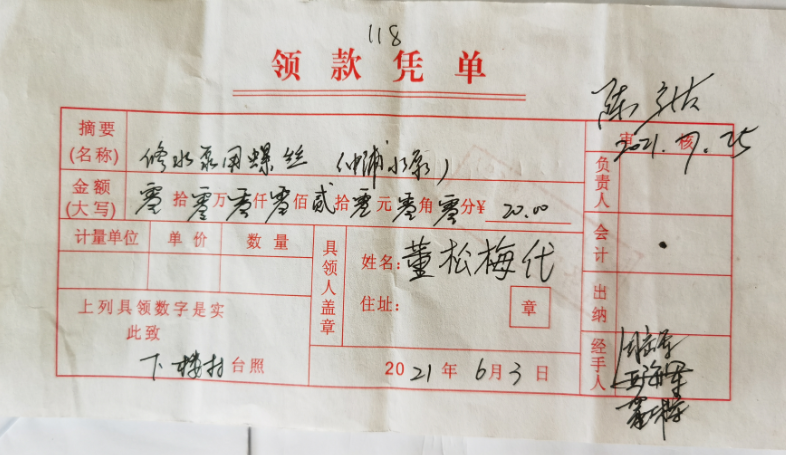 118
领款凭单
陈
2021.7.25
摘要
(名称)
修水泵用螺丝 (中浦水泵)
审核
金额
(大写)
零拾零万零仟零佰贰拾零元零角零分¥ 20.00
负责人
计量单位 单价 数量
具领人盖章
姓名:董松梅代
住址:
章
会计
出纳
上列具领数字是实
此致
下村台照
2021年6月3日
经手人